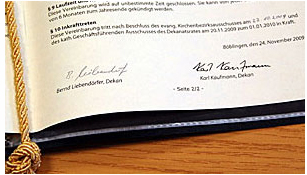 § 9 Laufzeit und
Diese Vereinbarung wird auf unbestimmte Zeit geschlossen. Sie kann von
von 6 Monaten zum Jahresende gekündigt werden.
§ 10 Inkrafttreten
Diese Vereinbarung tritt nach Beschluss des evang. Kirchenbezirksausschusses am
des kath. Geschäftsführenden Ausschusses des Dekanatsrates am 20.11.2009 zum 01.01.2010 in Kraft.
Böblingen, den 24. November 2009
Karl Kaufmann
Bernd Liebendörfer, Dekan
Karl Kaufmann, Dekan
- Seite 2/2 -